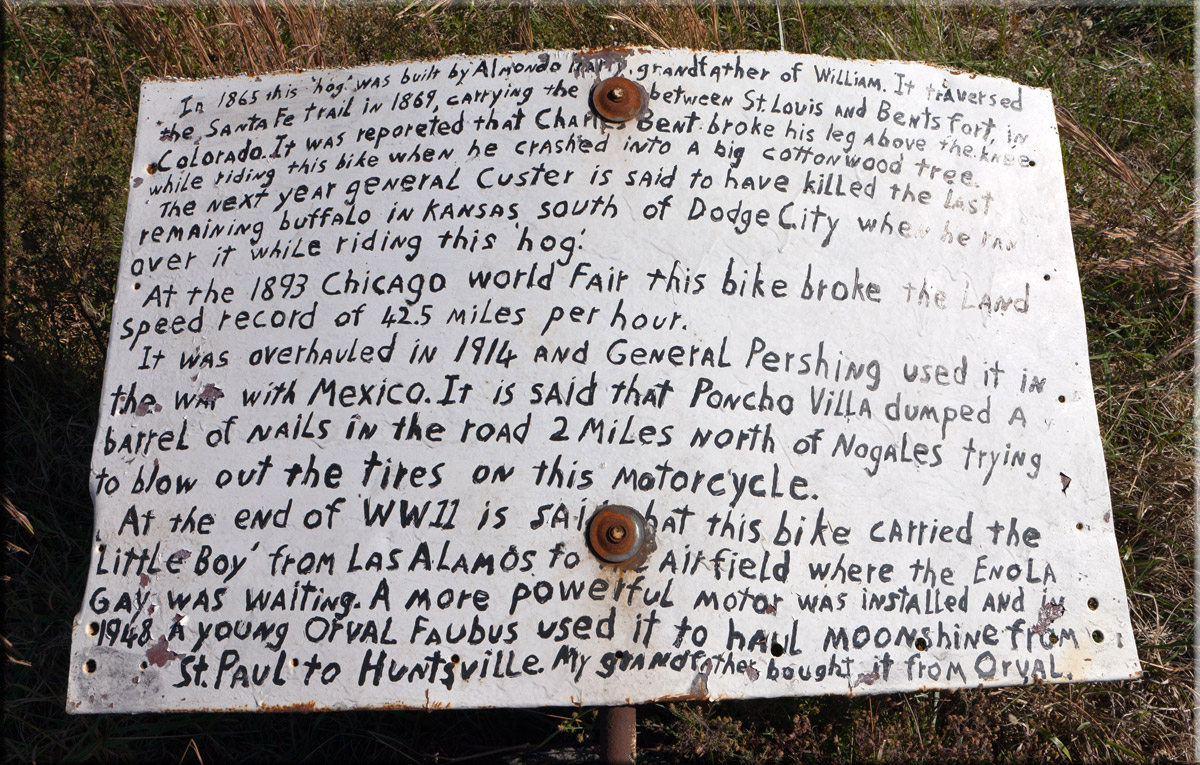 In 1865 this 'hog' was built by Almondo grandfather of William. It traversed
the Santa Fe trail in 1869, carrying the between St. Louis and Bents Fort, in
Colorado. It was reporeted that Charles Bent broke his leg above the knee
while riding this bike when he crashed into a big cottonwood tree.
The next year general Custer is said to have killed the last
remaining buffalo in Kansas, south of Dodge City when he ran
over it while riding this 'hog'.
At the 1893 Chicago world Fair this bike broke the land
speed record of 42.5 miles per hour.
It was overhauled in 1914 and General Pershing used it in
the war with Mexico. It is said that Poncho Villa dumped a
barrel of nails in the road 2 miles north of Nogales trying
to blow out the tires on this motorcycle.
At the end of WWII is said that this bike carried the
'Little Boy' from Las Alamos to Airfield where the Enola
Gay was waiting. A more powerful motor was installed and in
1948 a young Orval Faubus used it to haul moonshine from
St. Paul to Huntsville. My grandfather bought it from Orval.